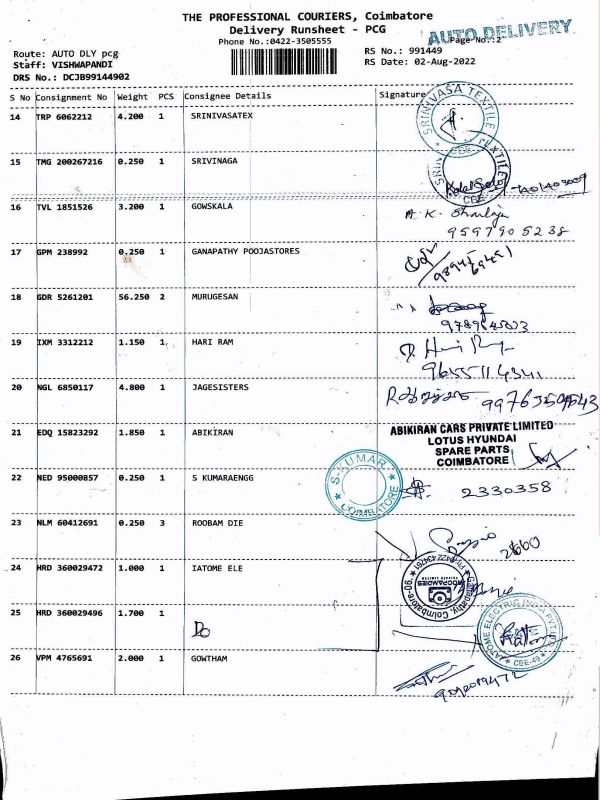 THE PROFESSIONAL COURIERS, Coimbatore
Delivery Runsheet - PCG
AUTO DELIVERY
Phone No.:0422-3505555
Page No.:2
Route: AUTO DLY pcg
RS No.: 991449
Staff: VISHWAPANDI
RS Date: 02-Aug-2022
DRS No.: DCJB99144902
S No Consignment No Weight PCS Consignee Details Signature
14 TRP 6062212 4.200 1 SRINIVASATEX
SRINIVASA TEXTILE
15 TMG 200267216 0.250 1 SRIVINAGA
TEXTILE
CBE
16 TVL 1851526 3.200 1 GOWSKALA
A. K.
9597905238
17 GPM 238992 0.250 1 GANAPATHY POOJASTORES
18 GDR 5261201 56.250 2 MURUGESAN
19 IXM 3312212 1.150 1 HARI RAM
9655114341
20 NGL 6850117 4.800 1 JAGESISTERS
21 EDQ 15823292 1.850 1 ABIKIRAN
ABIKIRAN CARS PRIVATE LIMITED
LOTUS HYUNDAI
SPARE PARTS
COIMBATORE
22 NED 95000857 0.250 1 S KUMARAENGG
S-KUMAR
COIMBATORE
2330358
23 NLM 60412691 0.250 3 ROOBAM DIE
24 HRD 360029472 1.000 1 IATOME ELE
Coimbatore-
25 HRD 360029496 1.700 1
Do
CBE-49
26 VPM 4765691 2.000 1 GOWTHAM